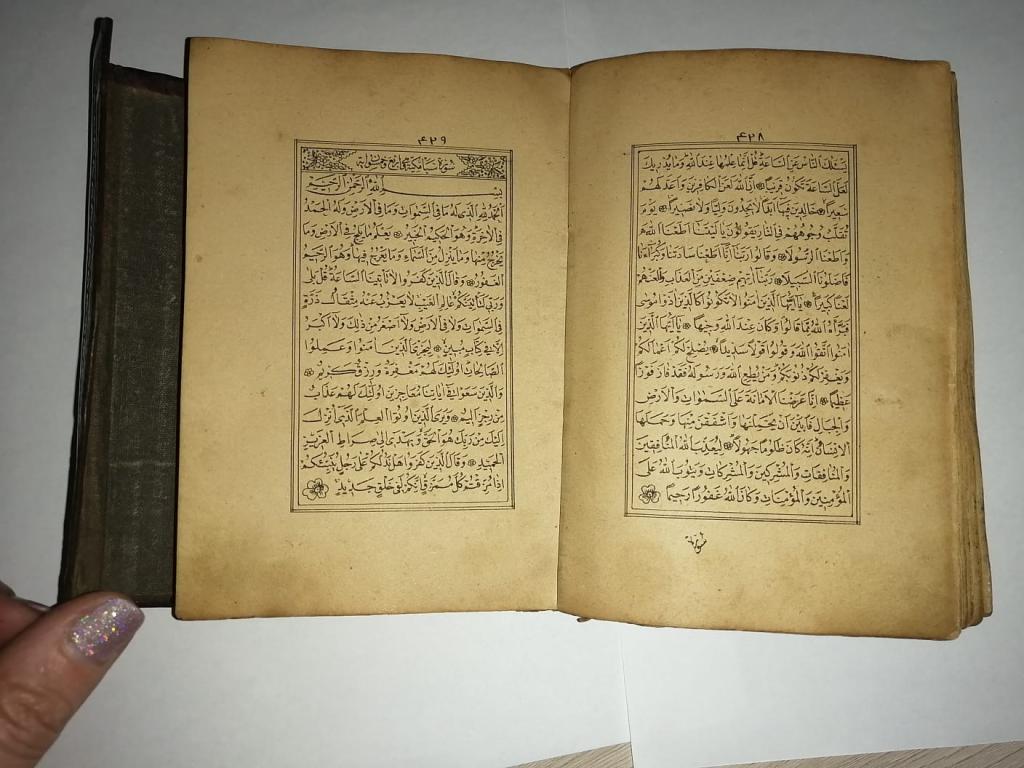 ٤٢٨
يسئلك الناس عن الساعة قل انما علمها عند الله وما يدريك
لعل الساعة تكون قريبا ۞ ان الله لعن الكافرين واعد لهم
سعيرا ۞ خالدين فيها ابدا لا يجدون وليا ولا نصيرا ۞ يوم
تقلب وجوههم في النار يقولون يا ليتنا اطعنا الله
واطعنا الرسولا ۞ وقالوا ربنا انا اطعنا سادتنا وكبراءنا
فاضلونا السبيلا ۞ ربنا اتهم ضعفين من العذاب والعنهم
لعنا كبيرا ۞ يا ايها الذين امنوا لا تكونوا كالذين اذوا موسى
فبراه الله مما قالوا وكان عند الله وجيها ۞ يا ايها الذين
امنوا اتقوا الله وقولوا قولا سديدا ۞ يصلح لكم اعمالكم
ويغفر لكم ذنوبكم ومن يطع الله ورسوله فقد فاز فوزا
عظيما ۞ انا عرضنا الامانة على السموات والارض
والجبال فابين ان يحملنها واشفقن منها وحملها
الانسان انه كان ظلوما جهولا ۞ ليعذب الله المنافقين
والمنافقات والمشركين والمشركات ويتوب الله على
المؤمنين والمؤمنات وكان الله غفورا رحيما
٤٢٩
سورة سبا مكية وهي اربع وخمسون اية
بسم الله الرحمن الرحيم
الحمد لله الذي له ما في السموات وما في الارض وله الحمد
في الاخرة وهو الحكيم الخبير ۞ يعلم ما يلج في الارض وما
يخرج منها وما ينزل من السماء وما يعرج فيها وهو الرحيم
الغفور ۞ وقال الذين كفروا لا تاتينا الساعة قل بلى
وربي لتاتينكم عالم الغيب لا يعزب عنه مثقال ذرة
في السموات ولا في الارض ولا اصغر من ذلك ولا اكبر
الا في كتاب مبين ۞ ليجزي الذين امنوا وعملوا
الصالحات اولئك لهم مغفرة ورزق كريم ۞
والذين سعوا في اياتنا معاجزين اولئك لهم عذاب
من رجز اليم ۞ ويرى الذين اوتوا العلم الذي انزل
اليك من ربك هو الحق ويهدي الى صراط العزيز
الحميد ۞ وقال الذين كفروا هل ندلكم على رجل ينبئكم
اذا مزقتم كل ممزق انكم لفي خلق جديد